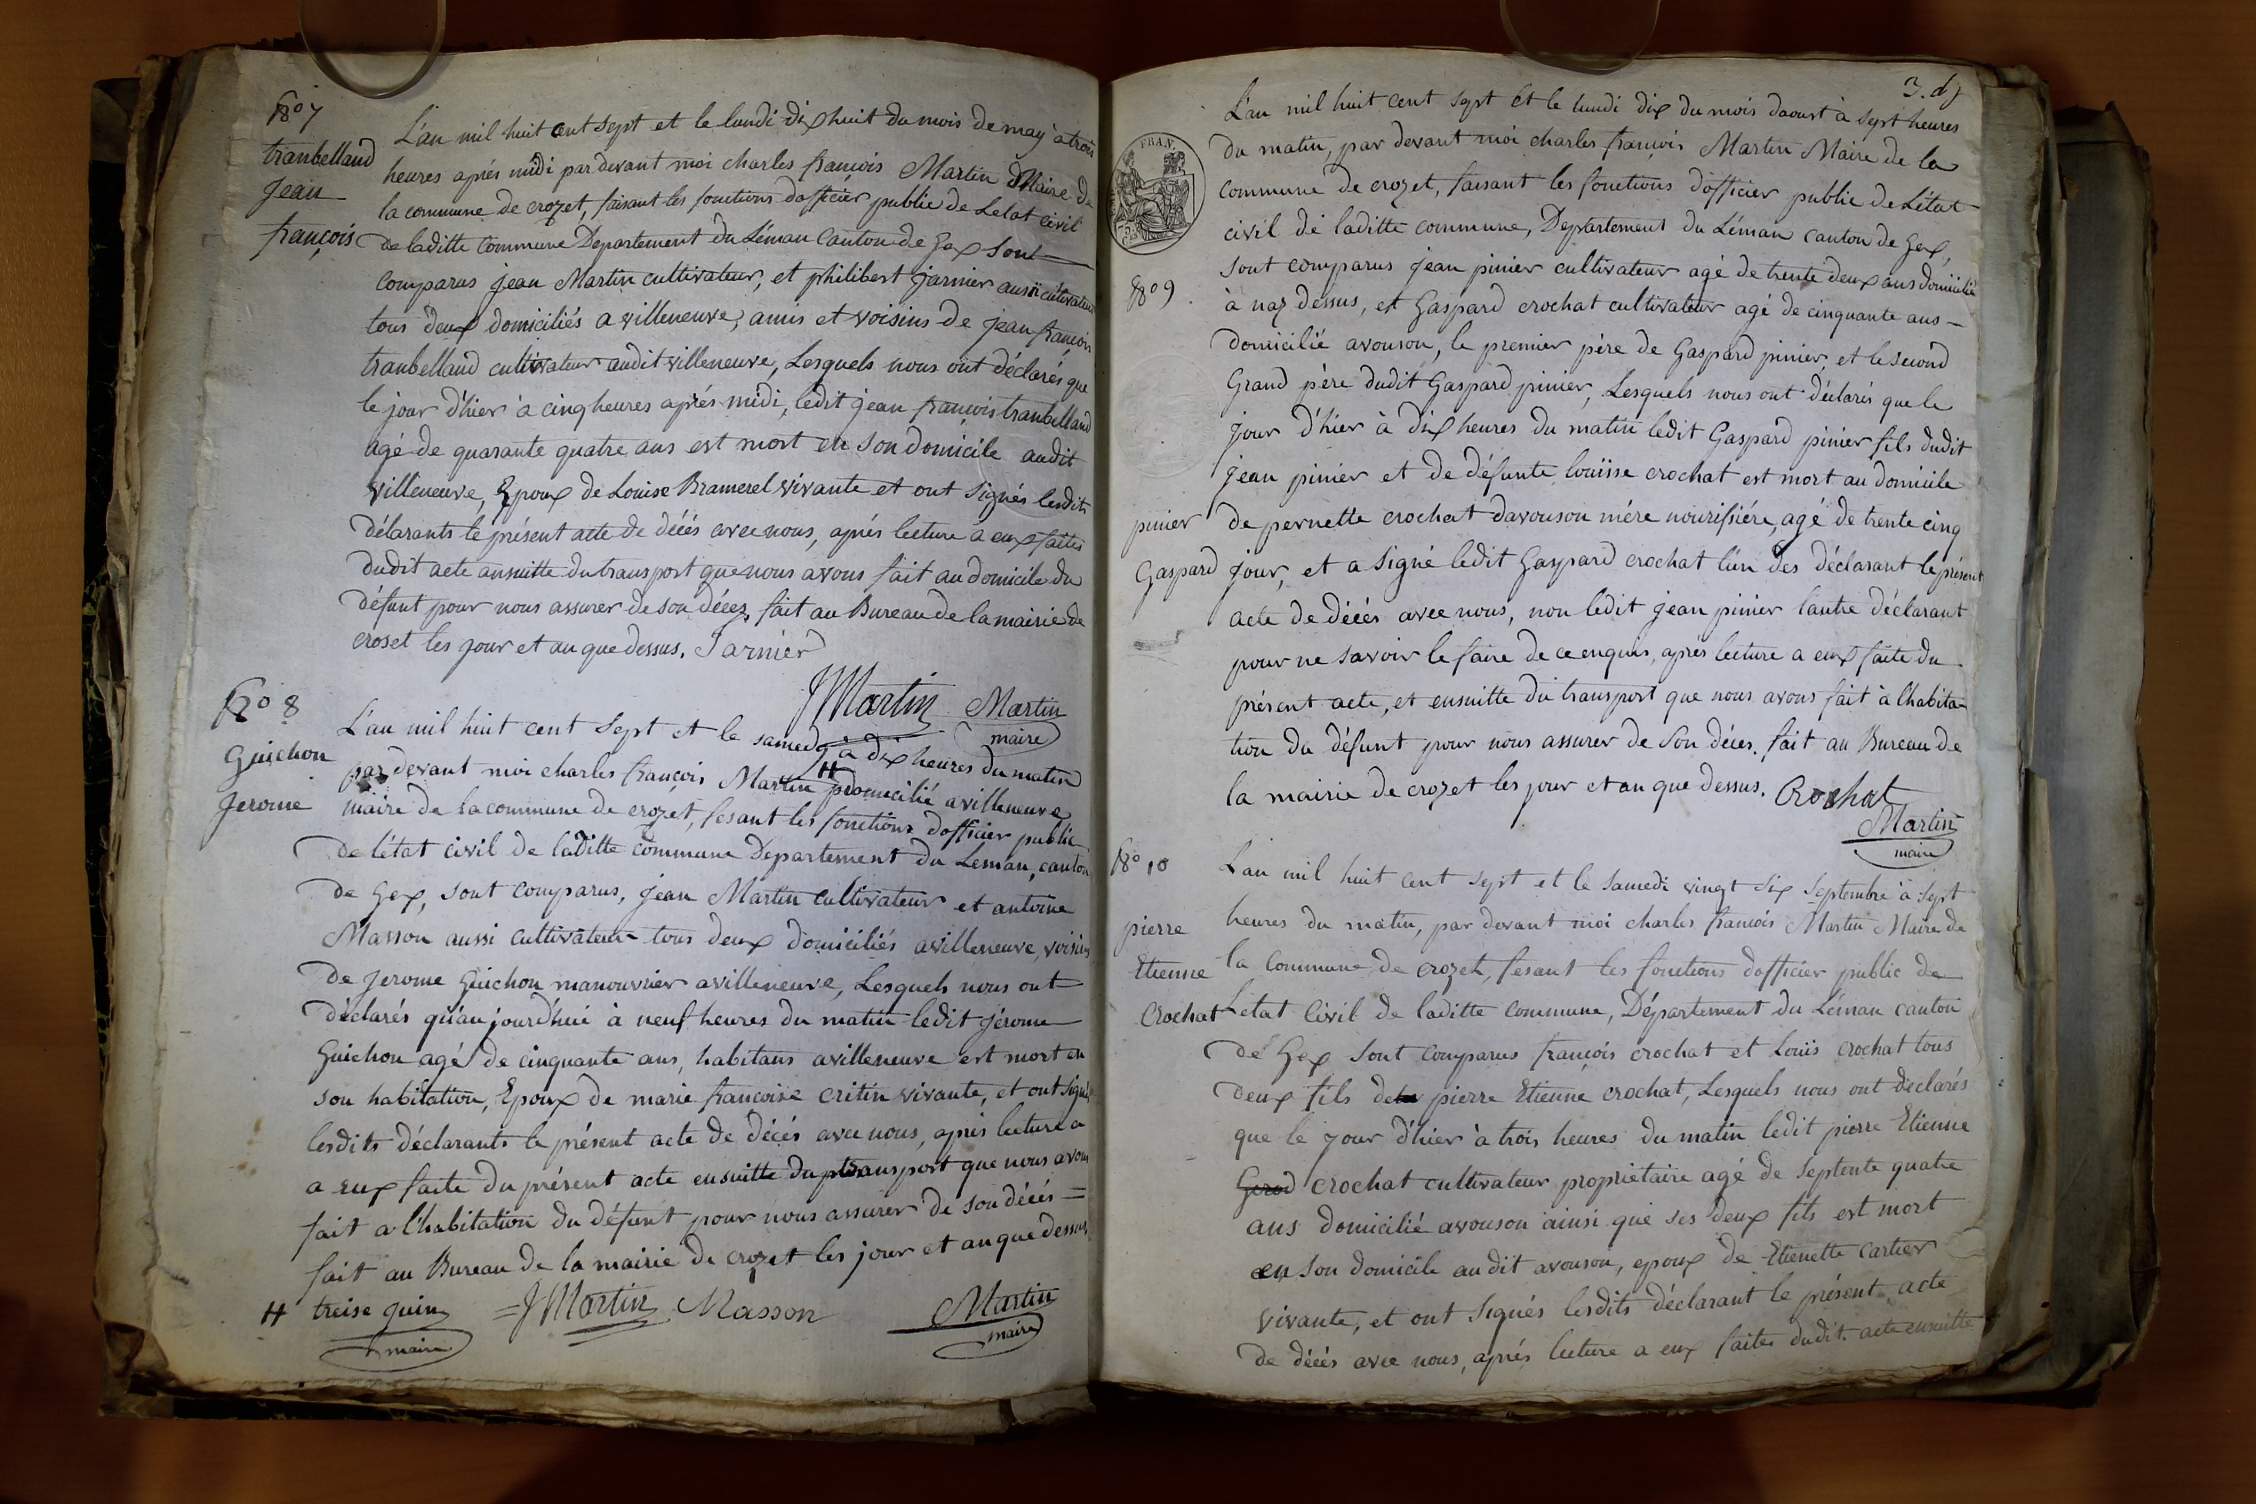 No 7
tranbelland
Jean
françois
L'an mil huit cent sept et le lundi dix huit du mois de may a trois
heures aprés midi par devant moi charles françois Martin Maire de
la commune de crozet, faisant les fonctions dofficier public de Letat civil
de laditte Commune Departement du Léman Canton de Gex sont
comparus jean Martin cultivateur, et philibert jarnier aussi cultivateur
tous deux domiciliés a villeneuve, amis et voisins de jean françois
tranbelland cultivateur audit villeneuve, Lesquels nous ont déclarés que
le jour d'hier à cinq heures aprés midi, ledit jean françois tranbelland
agé de quarante quatre ans est mort en son domicile audit
villeneuve, Epoux de Louise Bramerel vivante et ont signés lesdits
déclarants le présent acte de décés avec nous, aprés lecture a eux faites
dudit acte ansuitte du transport que nous avons fait au domicile du
défunt pour nous assurer de son décez, fait au Bureau de la mairie de
croset les jour et an que dessus. Jarnier
JMartin Martin
maire
No 8
Guichon
Jerome
L'an mil huit cent sept et le samedy à dix heures du matin
par devant moi charles françois Martin H domicilié a villeneuve
maire de la commune de crozet, fesant les fonctions dofficier public
de l'état civil de laditte commune Departement du Leman, canton
de Gex, sont comparus, jean Martin cultivateur et antoine
Masson aussi cultivateur tous deux domiciliés a villeneuve voisins
de jerome Guichon manouvrier a villeneuve, Lesquels nous ont
déclarés qu'aujourd'hui à neuf heures du matin ledit jérome
Guichon agé de cinquante ans, habitans a villeneuve est mort en
son habitation, Epoux de marie françoise critin vivante, et ont signés
lesdits déclarants le présent acte de décés avec nous, aprés lecture a
a eux faite du présent acte ensuitte du transport que nous avons
fait a l'habitation du défunt pour nous assurer de son décés =
fait au Bureau de la mairie de crozet les jour et an que dessus
H treise juin =JMartin Masson Martin
maire maire
3. d
FRAN.
L'an mil huit cent sept et le lundi dix du mois daoust à sept heures
du matin, par devant moi charles françois Martin Maire de la
commune de crozet, faisant les fonctions d'officier public de L'état
civil de laditte commune, Departement du Léman canton de Gex,
No 9
sont comparus jean pinier cultivateur agé de trente deux ans domicilié
à naz dessus, et Gaspard crochat cultivateur agé de cinquante ans
domicilié avouson, le premier père de Gaspard pinier, et le second
Grand père dudit Gaspard pinier, Lesquels nous ont déclarés que le
jour d'hier à dix heures du matin ledit Gaspard pinier fils dudit
jean pinier et de défunte louise crochat est mort au domicile
pinier
Gaspard
de pernette crochat davouson mére nourissiére, agé de trente cinq
jour, et a signé ledit Gaspard crochat l'un des déclarant le présent
acte de décés avec nous, non ledit jean pinier lautre déclarant
pour ne savoir le faire de ce enquis, aprés lecture a eux faite du
présent acte, et ensuitte du transport que nous avons fait à l'habita-
tion du défunt pour nous assurer de son décés. fait au Bureau de
la mairie de crozet les jour et an que dessus. Crochat
Martin
maire
No 10
pierre
Etienne
Crochat
L'an mil huit cent sept et le samedi vingt six septembre à sept
heures du matin, par devant moi charles françois Martin Maire de
la commune de crozet, fesant les fonctions dofficier public de
Letat Civil de laditte commune, Département du Léman canton
de Gex sont comparus françois crochat et Louis crochat tous
deux fils de pierre Etienne crochat, Lesquels nous ont declarés
que le jour d'hier à trois heures du matin ledit pierre Etienne
Gerod crochat cultivateur proprietaire agé de septente quatre
ans domicilié avouson ainsi que ses deux fils est mort
en son domicile audit avouson, epoux de Etienette cartier
vivante, et ont signés lesdits déclarant le présent acte
de décés avec nous, aprés lecture a eux faites dudit acte ensuitte